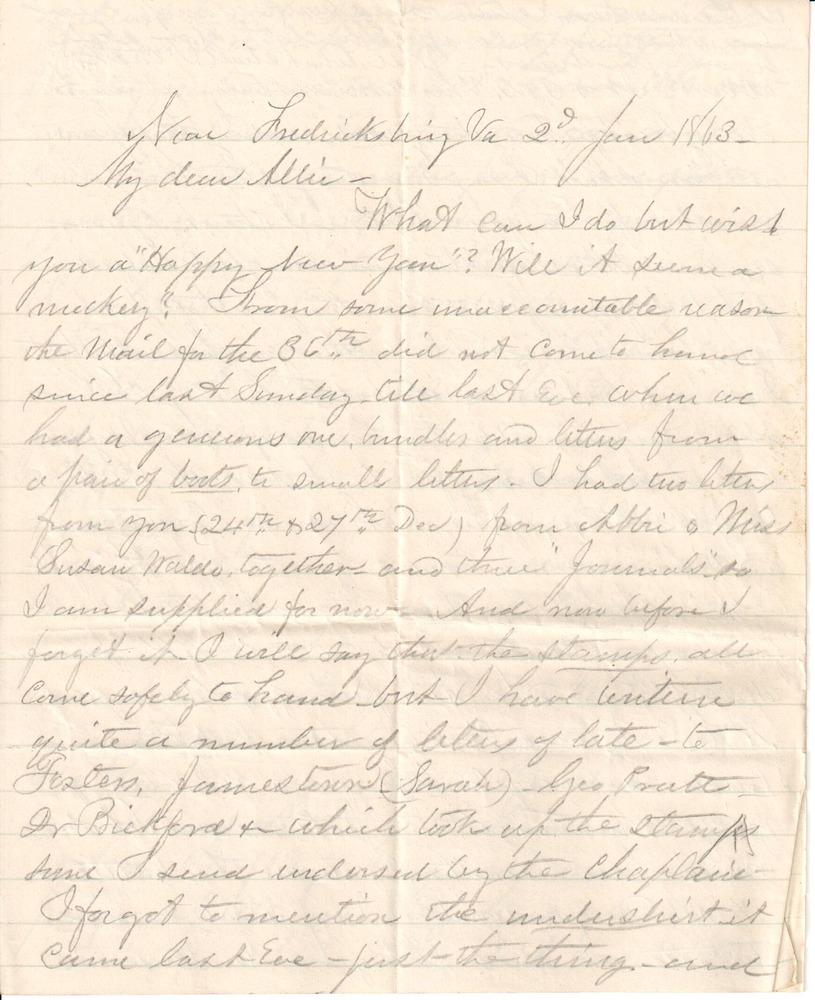 Near Fredricksburg Va 2d. Jan 1863-
My dear Allie-
What can I do but wish
you a "Happy New Year"? Will it seem a
mockery? From some unaccountable reason
the Mail for the 36th did not come to hand
since last Sunday till last Eve, when we
had a generous one, bundles and letters from
a pair of boots, to small letters. I had two letters
from you (24th & 27th Dec) from Abbie & Miss
Susan Waldo, together- and three "Journals" so
I am supplied for now- And now before I
forget it I will say that the stamps, all
come safely to hand- but I have written
quite a number of letters of late- to
Fosters, Jamestown (Sarah)- Geo Pratt-
Dr Bickford &- which took up the stamps
some I send endorsed by the Chaplain-
I forgot to mention the undershirt it
came last Eve- just- the thing- and